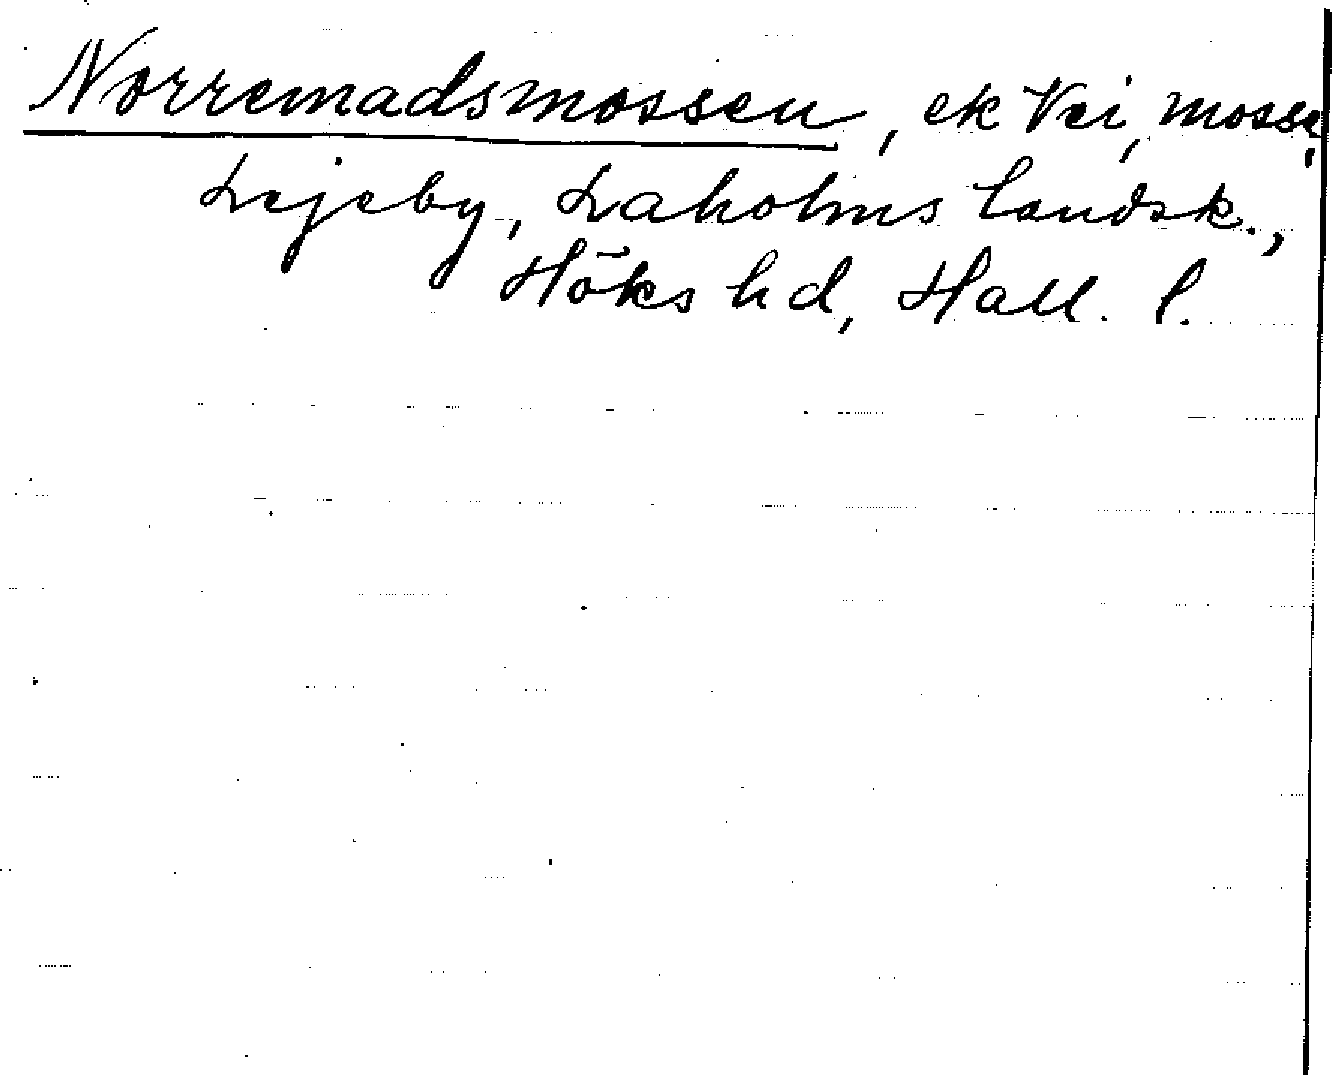 Norremadsmossen, ek Vei, mosse,
Lejeby, Laholms landsk.,
Höks hd, Hall. l.